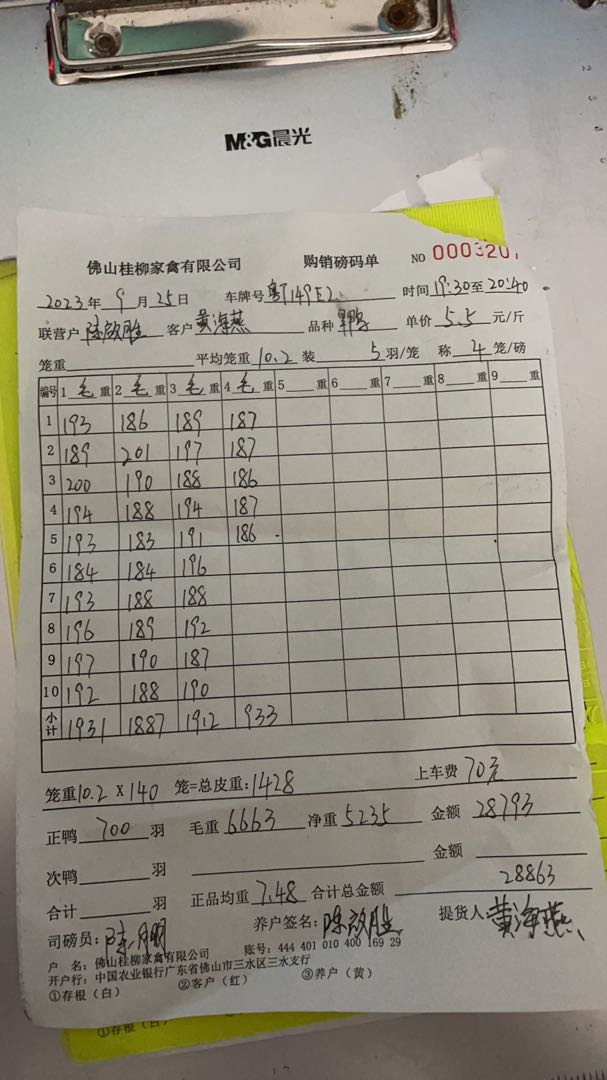 M&G晨光
佛山桂柳家禽有限公司 购销磅码单 NO 0003207
2023年 9月25日 车牌号 粤T149E2 时间19:30至20:40
联营户 陈啟胜 客户 黄海燕 品种 单价 5.5 元/斤
笼重 平均笼重 10.2 装 5 羽/笼 称 4 笼/磅
编号 1 毛 重 2 毛 重 3 毛 重 4 毛 重 5 重 6 重 7 重 8 重 9 重
1 193 186 189 187
2 189 201 197 187
3 200 190 188 186
4 194 188 194 187
5 193 183 191 186
6 184 184 196
7 193 188 188
8 196 189 192
9 197 190 187
10 192 188 190
小计 1931 1887 1912 933
笼重10.2 X 140 笼=总皮重:1428 上车费 70元
正鸭 700 羽 毛重 6663 净重 5235 金额 28793
次鸭 羽 金额
合计 羽 正品均重 7.48 合计总金额 28863
司磅员: 养户签名: 陈啟胜 提货人: 黄海燕
户 名: 佛山桂柳家禽有限公司 账号: 444 401 010 400 169 29
开户行: 中国农业银行广东省佛山市三水区三水支行
①存根(白) ②客户(红) ③养户(黄)
①存根(白)